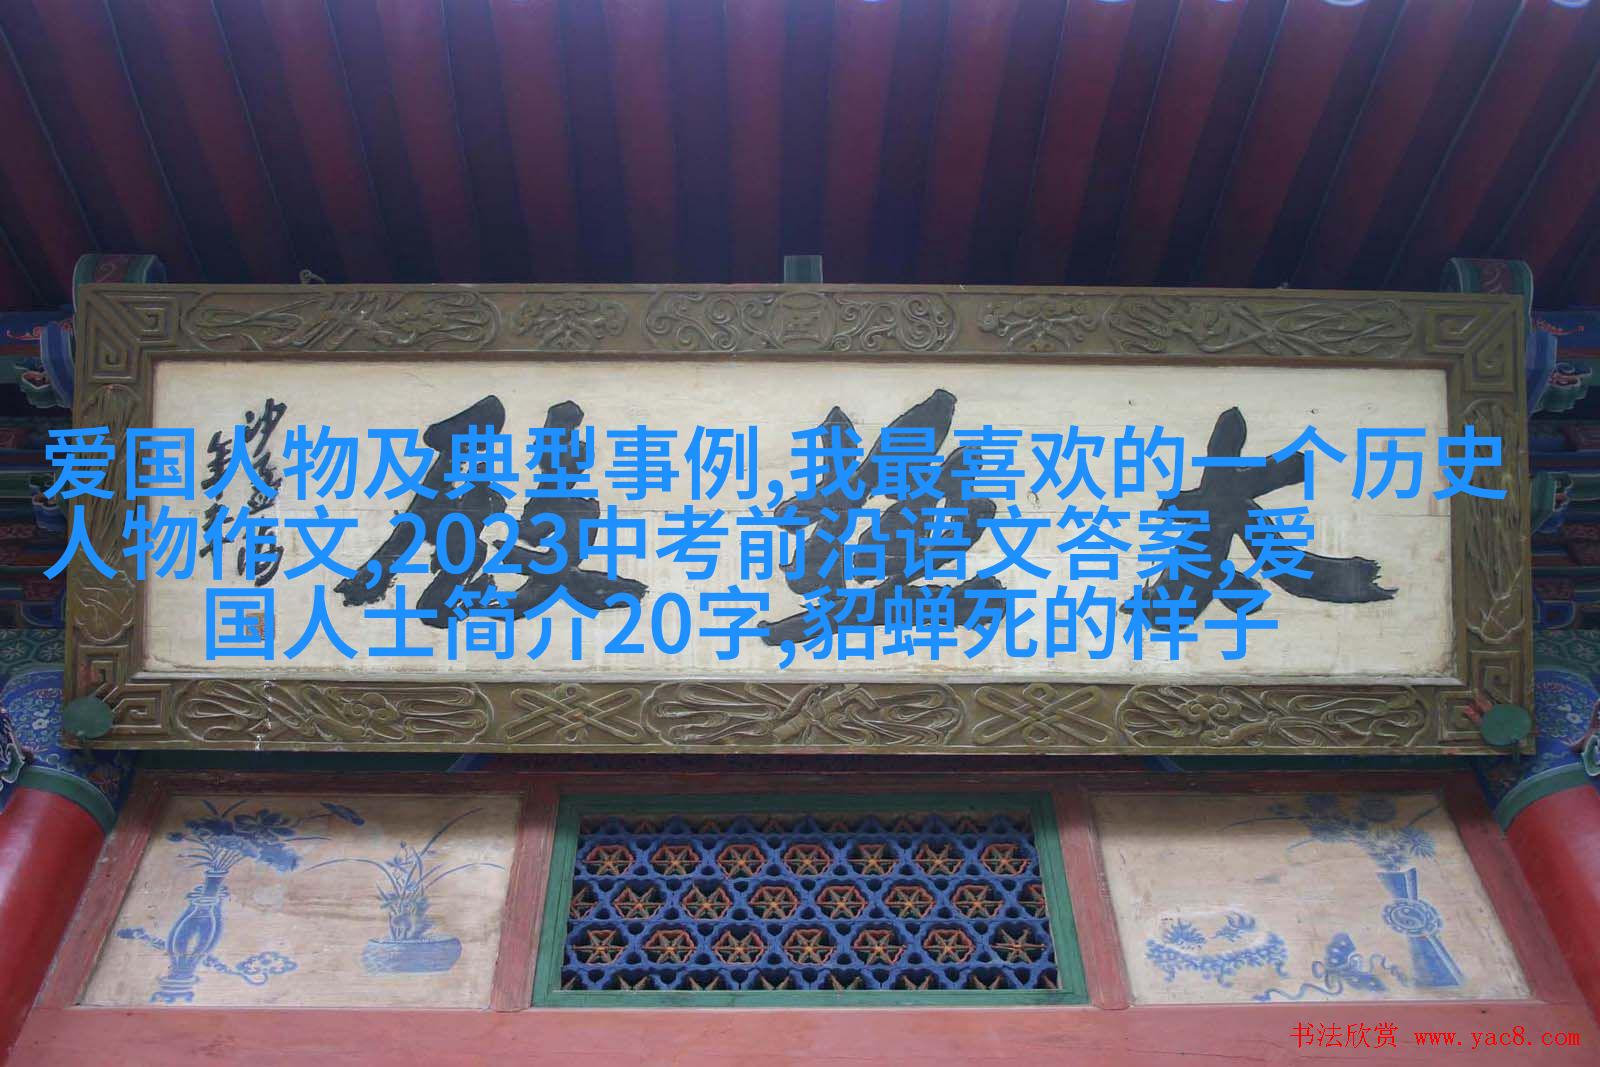 爱国人物及典型事例,我最喜欢的一个历史
人物作文,2023中考前沿语文答案,爱
国人士简介20字,貂蝉死的样子
太極殿
书法欣赏 www.yac8.com